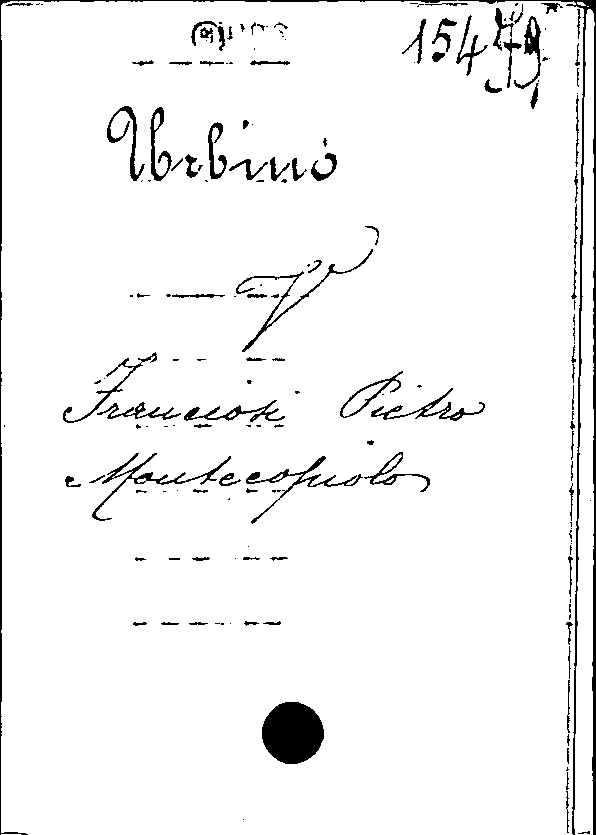 15479
Urbino
V
Franciosi Pietro
Montecopiolo